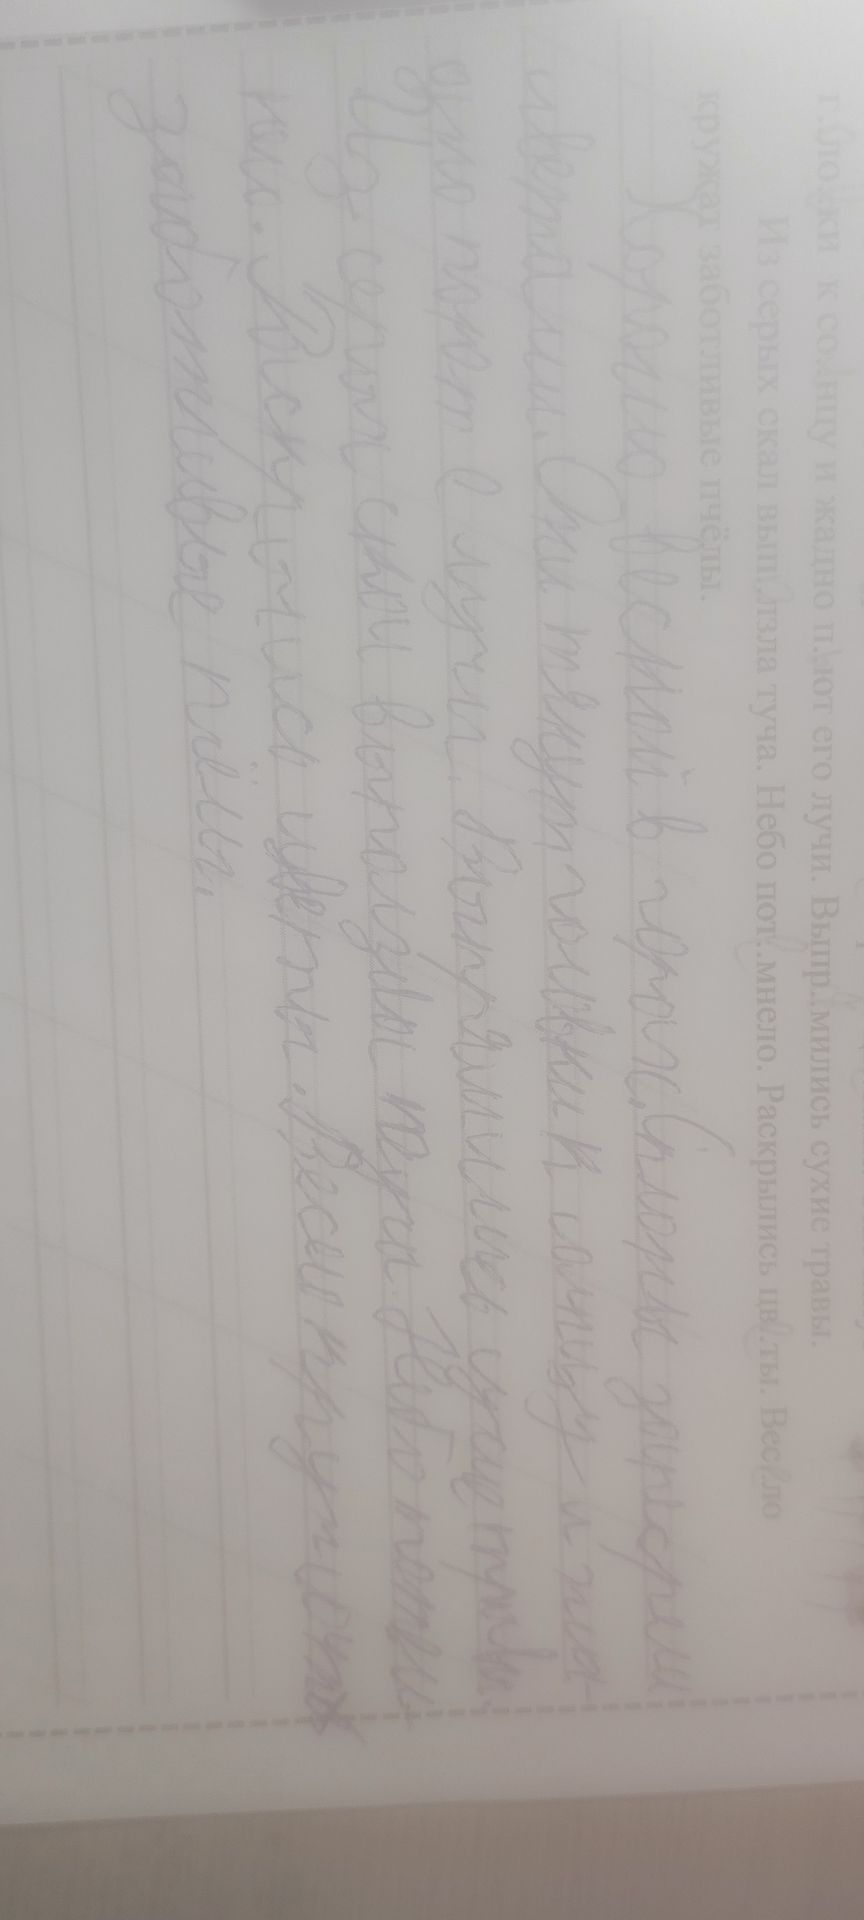 г..ло..ки к со..нцу и жадно п..ют его лучи. Выпр..мились сухие травы.
Из серых скал вып..лзла туча. Небо пот..мнело. Раскрылись цв..ты. Вес..ло
кружат заботливые пчёлы.
Хорошо весной в горах. Склоны запестрели
цветами. Они тянут головки к солнцу и жа-
дно пьют его лучи. Выпрямились сухие травы.
Из серых скал выползла туча. Небо потем-
нело. Раскрылись цветы. Весело кружат
заботливые пчёлы.